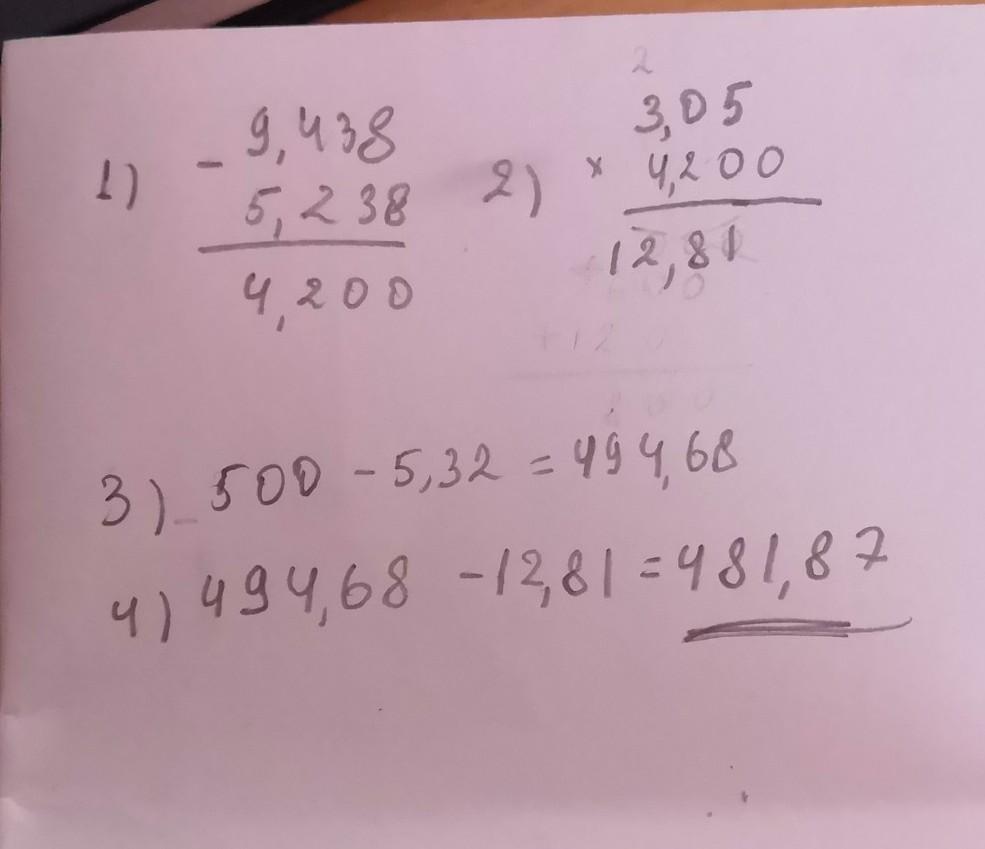 1) - 9,438
5,238
4,200
2) 2
3,05
× 4,200
12,81
3) 500 - 5,32 = 494,68
4) 494,68 - 12,81 = 481,87